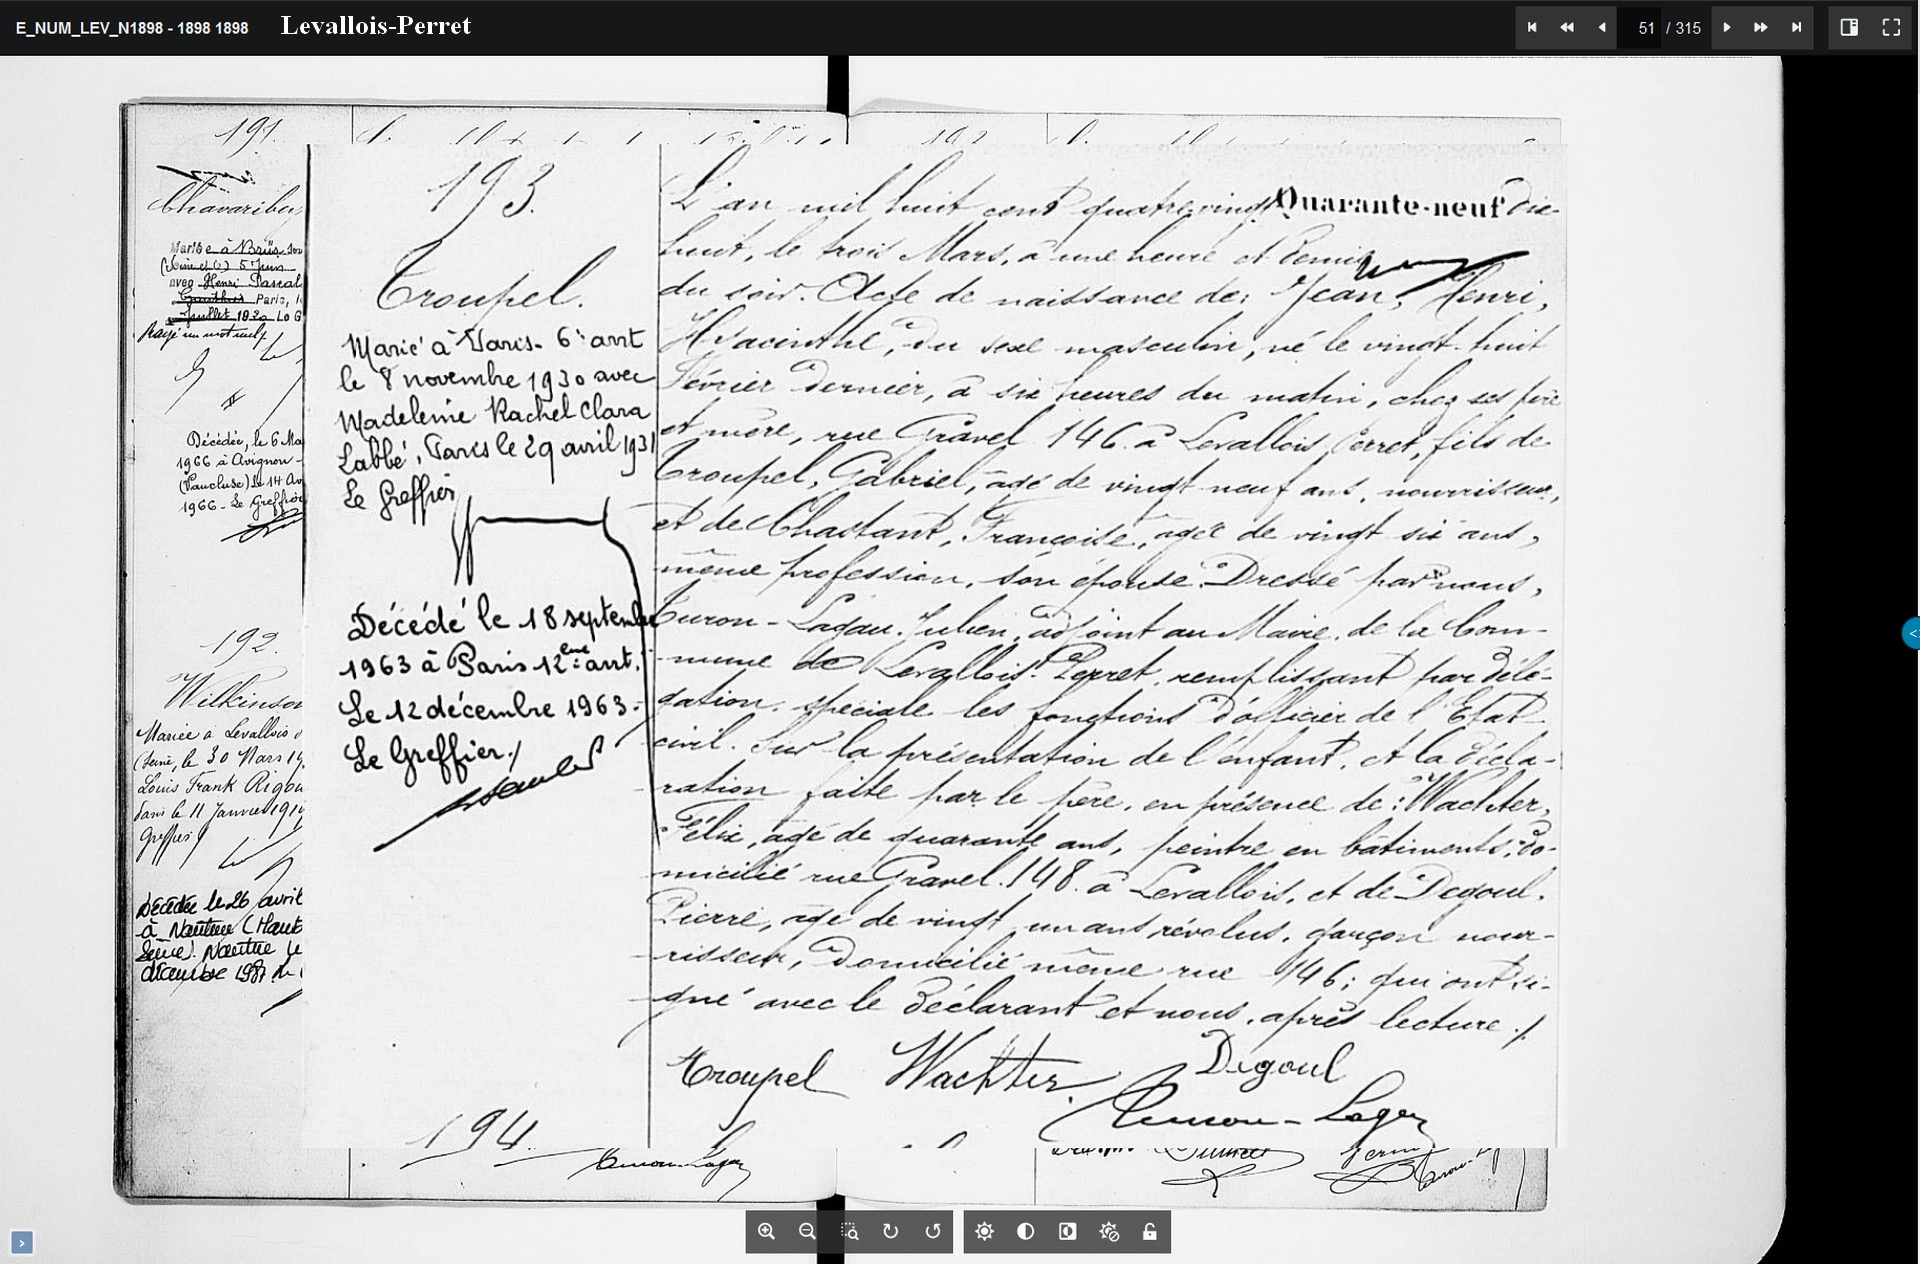 E_NUM_LEV_N1898 - 1898 1898
Levallois-Perret
51 / 315
191.
192
Chavaribey
Mariée à
5 Juin
avec Henri Pascal
Paris, le
Juillet 1930 Le G
Rayé un mot nul
Décédée, le 6 Ma
1966 à Avignon -
(Vaucluse) Le 14 Av
1966 - Le Greffier
192.
Wilkinson
Mariée à Levallois
(Seine, le 30 Mars 19
Louis Frank Rigou
Paris le 11 Janvier 191
Greffier
Décédée le 26 avril
à Nanterre (Haut
Seine). Nanterre le
décembre 1987
193.
Troupel.
Marié à Paris - 6e arrt
le 8 novembre 1930 avec
Madeleine Rachel Clara
Labbé, Paris le 29 avril 1931
Le Greffier
Décédé le 18 septembre
1963 à Paris 12ème arrt.
Le 12 décembre 1963.
Le Greffier /
Quarante-neuf
L'an mil huit cent quatre vingt dix-
huit, le trois Mars, à une heure et demie
du soir. Acte de naissance de: Jean, Henri,
Hyacinthe, du sexe masculin, né le vingt-huit
Février dernier, à six heures du matin, chez ses père
et mère, rue Gravel 146 à Levallois-Perret, fils de
Troupel, Gabriel, âgé de vingt neuf ans, nourrisseur,
et de Chastant, Françoise, âgée de vingt six ans,
même profession, son épouse. Dressé par nous,
Curon - Lagau, Julien, adjoint au Maire de la Com-
-mune de Levallois-Perret, remplissant par délé-
gation spéciale les fonctions d'officier de l'Etat
civil. Sur la présentation de l'enfant, et la décla-
ration faite par le père, en présence de: Wachter,
Félix, âgé de quarante ans, peintre en bâtiments, do-
micilié rue Gravel. 148 à Levallois, et de Degoul,
Pierre, âgé de vingt un ans révolus, garçon nour-
-risseur, domicilié même rue 146; qui ont si-
gné avec le déclarant et nous, après lecture ./.
Troupel Wachter Degoul
194.